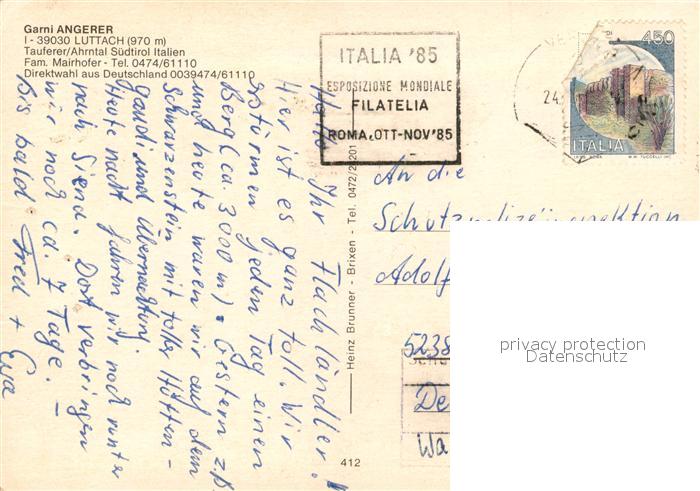 Garni ANGERER
I - 39030 LUTTACH (970 m)
Tauferer/Ahrntal Südtirol Italien
Fam. Mairhofer - Tel. 0474/61110
Direktwahl aus Deutschland 0039474/61110
ITALIA '85
ESPOSIZIONE MONDIALE
FILATELIA
ROMA, OTT-NOV '85
24.
450
ITALIA
Hallo Ihr Flachländler!
Hier ist es ganz toll. Wir
erstürmen jeden Tag einen
Berg (ca 3000 m). Gestern z.B.
und heute waren wir auf dem
Schwarzenstein mit toller Hütten-
gaudi und Übernachtung.
Heute nacht fahren wir noch runter
nach Siena. Dort verbringen
wir noch ca. 7 Tage. –
Bis bald Fred + Eva
Heinz Brunner - Brixen - Tel. 0472/22201
412
An die
Schutzpolizeiinspektion
Adolf
5238
De
Wa
privacy protection
Datenschutz